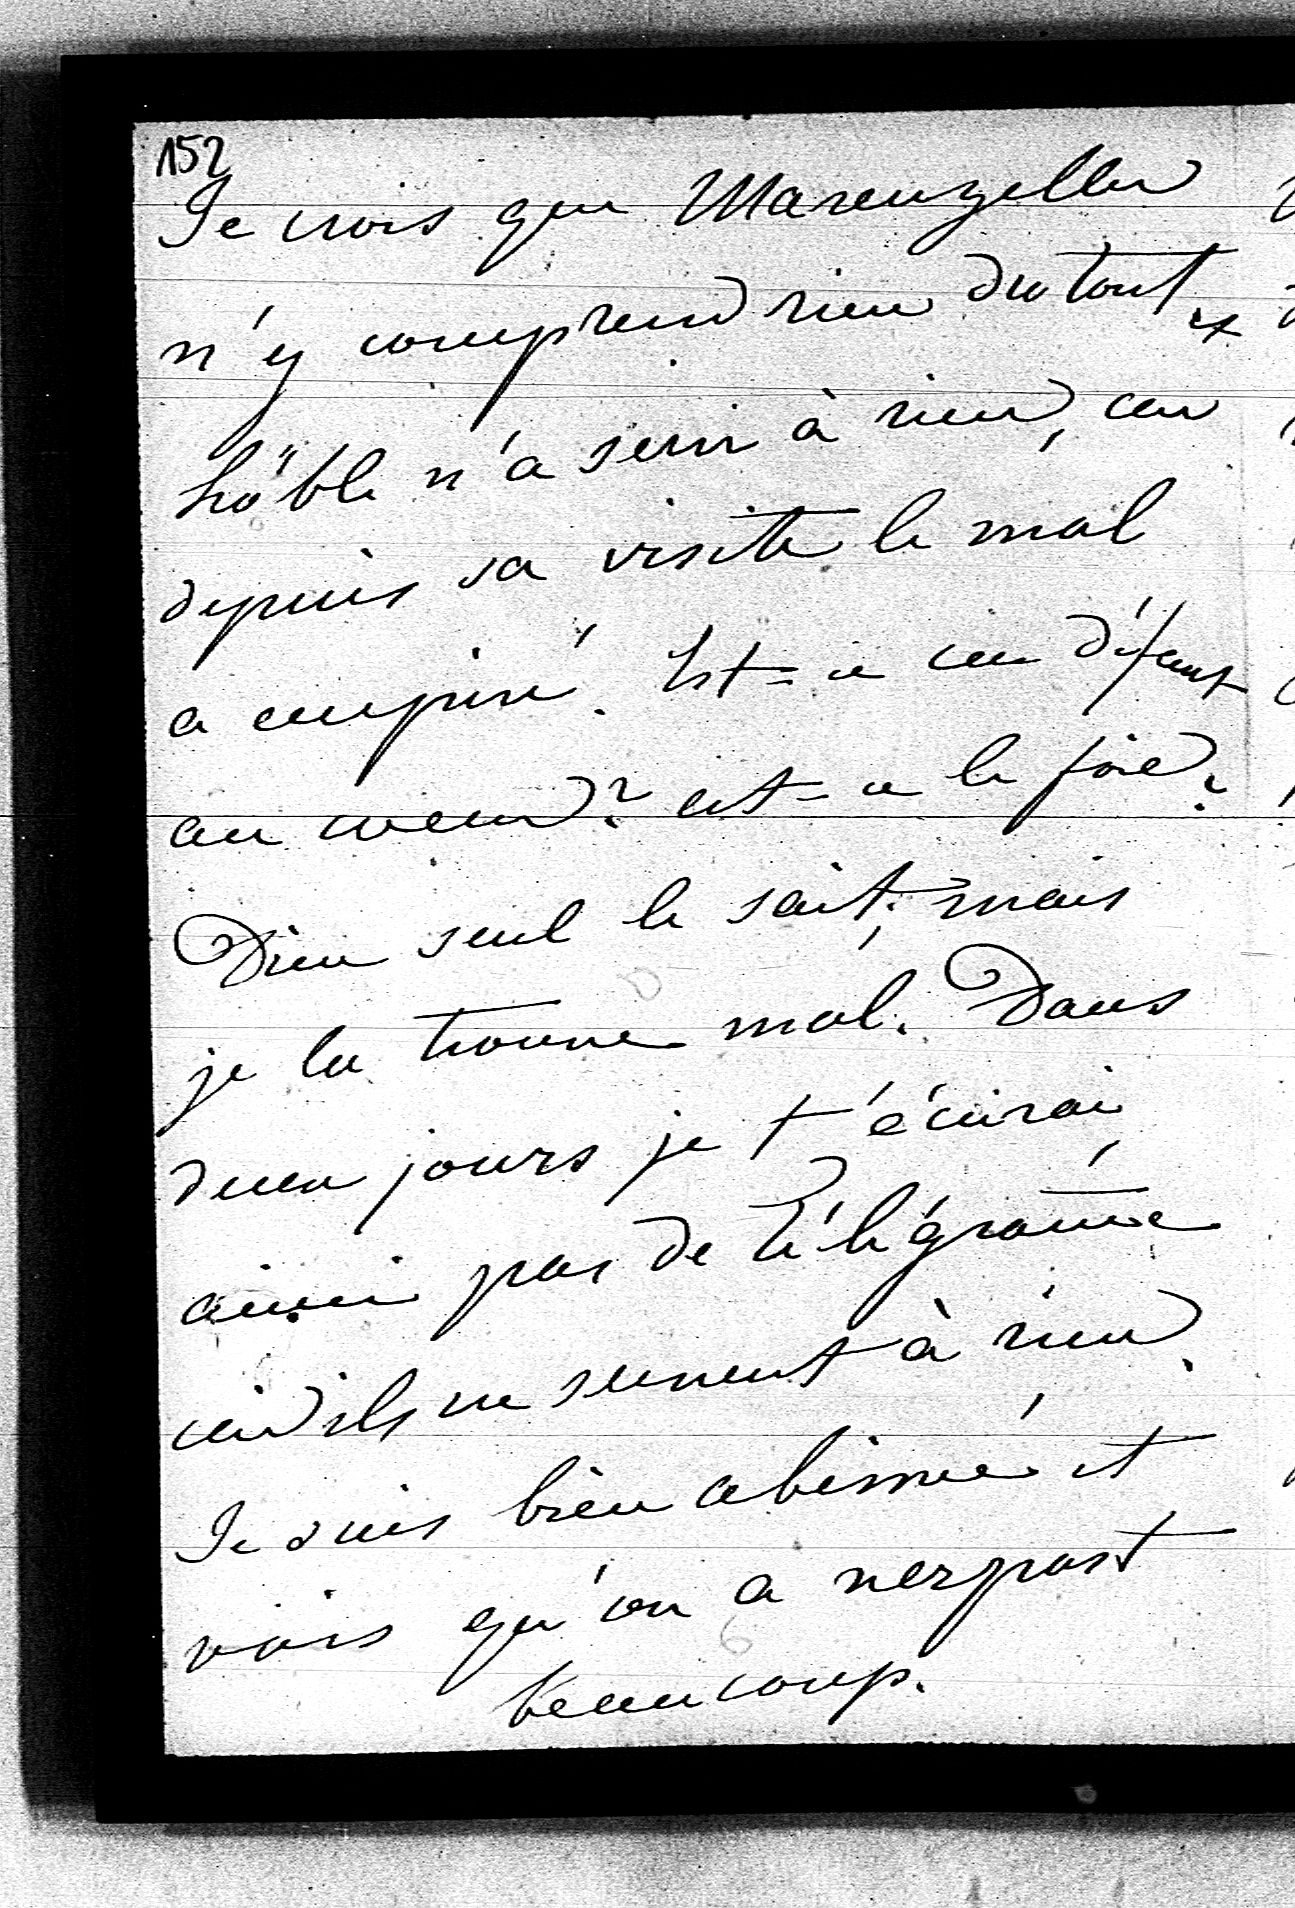 152
Je crois que Marenzeller
n'y comprend rien du tout, et
hö'ble n'a servi à rien, car
depuis sa visite le mal
a empiré. Est=ce un défaut
au coeur? est=ce le foie?
Dieu seul le sait; mais
je la trouve mal. Dans
deux jours je t'écrirai,
ainsi pas de télégram̄e
car ils ne servent à rien.
Je suis bien abîmée et
vois qu'on a
beaucoup.